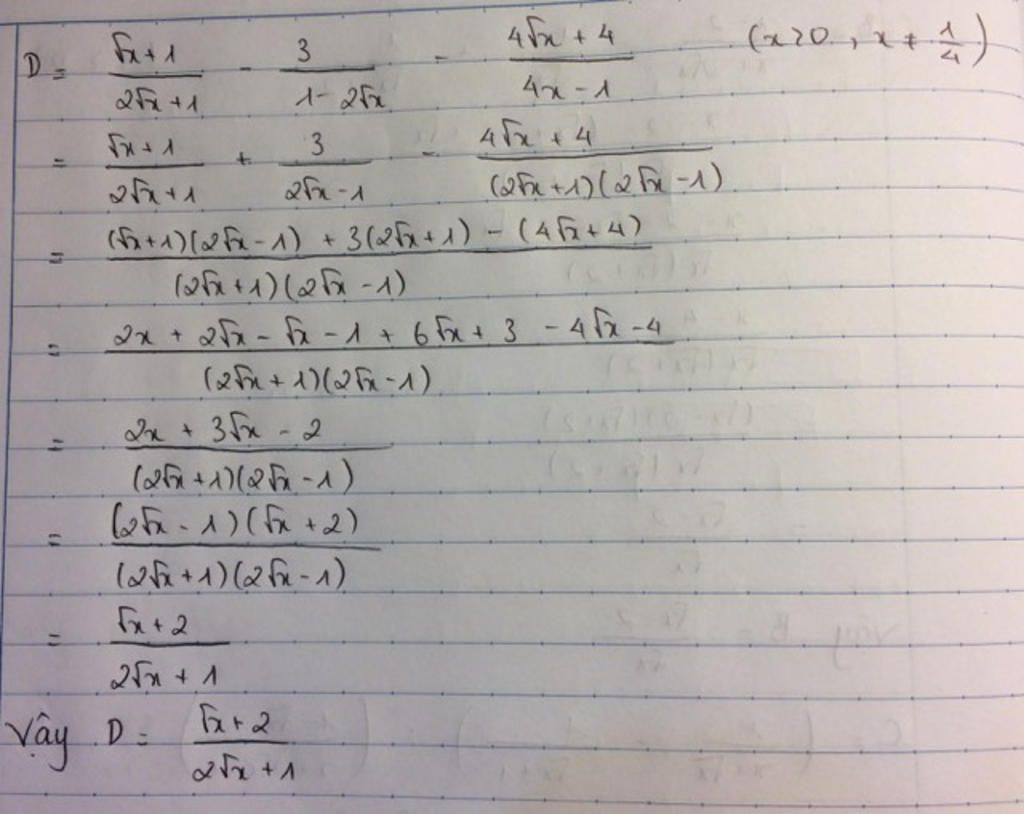 D = (√x + 1)/(2√x + 1) - 3/(1 - 2√x) - (4√x + 4)/(4x - 1) (x > 0, x ≠ 1/4)
= (√x + 1)/(2√x + 1) + 3/(2√x - 1) - (4√x + 4)/((2√x + 1)(2√x - 1))
= ((√x + 1)(2√x - 1) + 3(2√x + 1) - (4√x + 4))/((2√x + 1)(2√x - 1))
= (2x + 2√x - √x - 1 + 6√x + 3 - 4√x - 4)/((2√x + 1)(2√x - 1))
= (2x + 3√x - 2)/((2√x + 1)(2√x - 1))
= ((2√x - 1)(√x + 2))/((2√x + 1)(2√x - 1))
= (√x + 2)/(2√x + 1)
Vậy D = (√x + 2)/(2√x + 1)